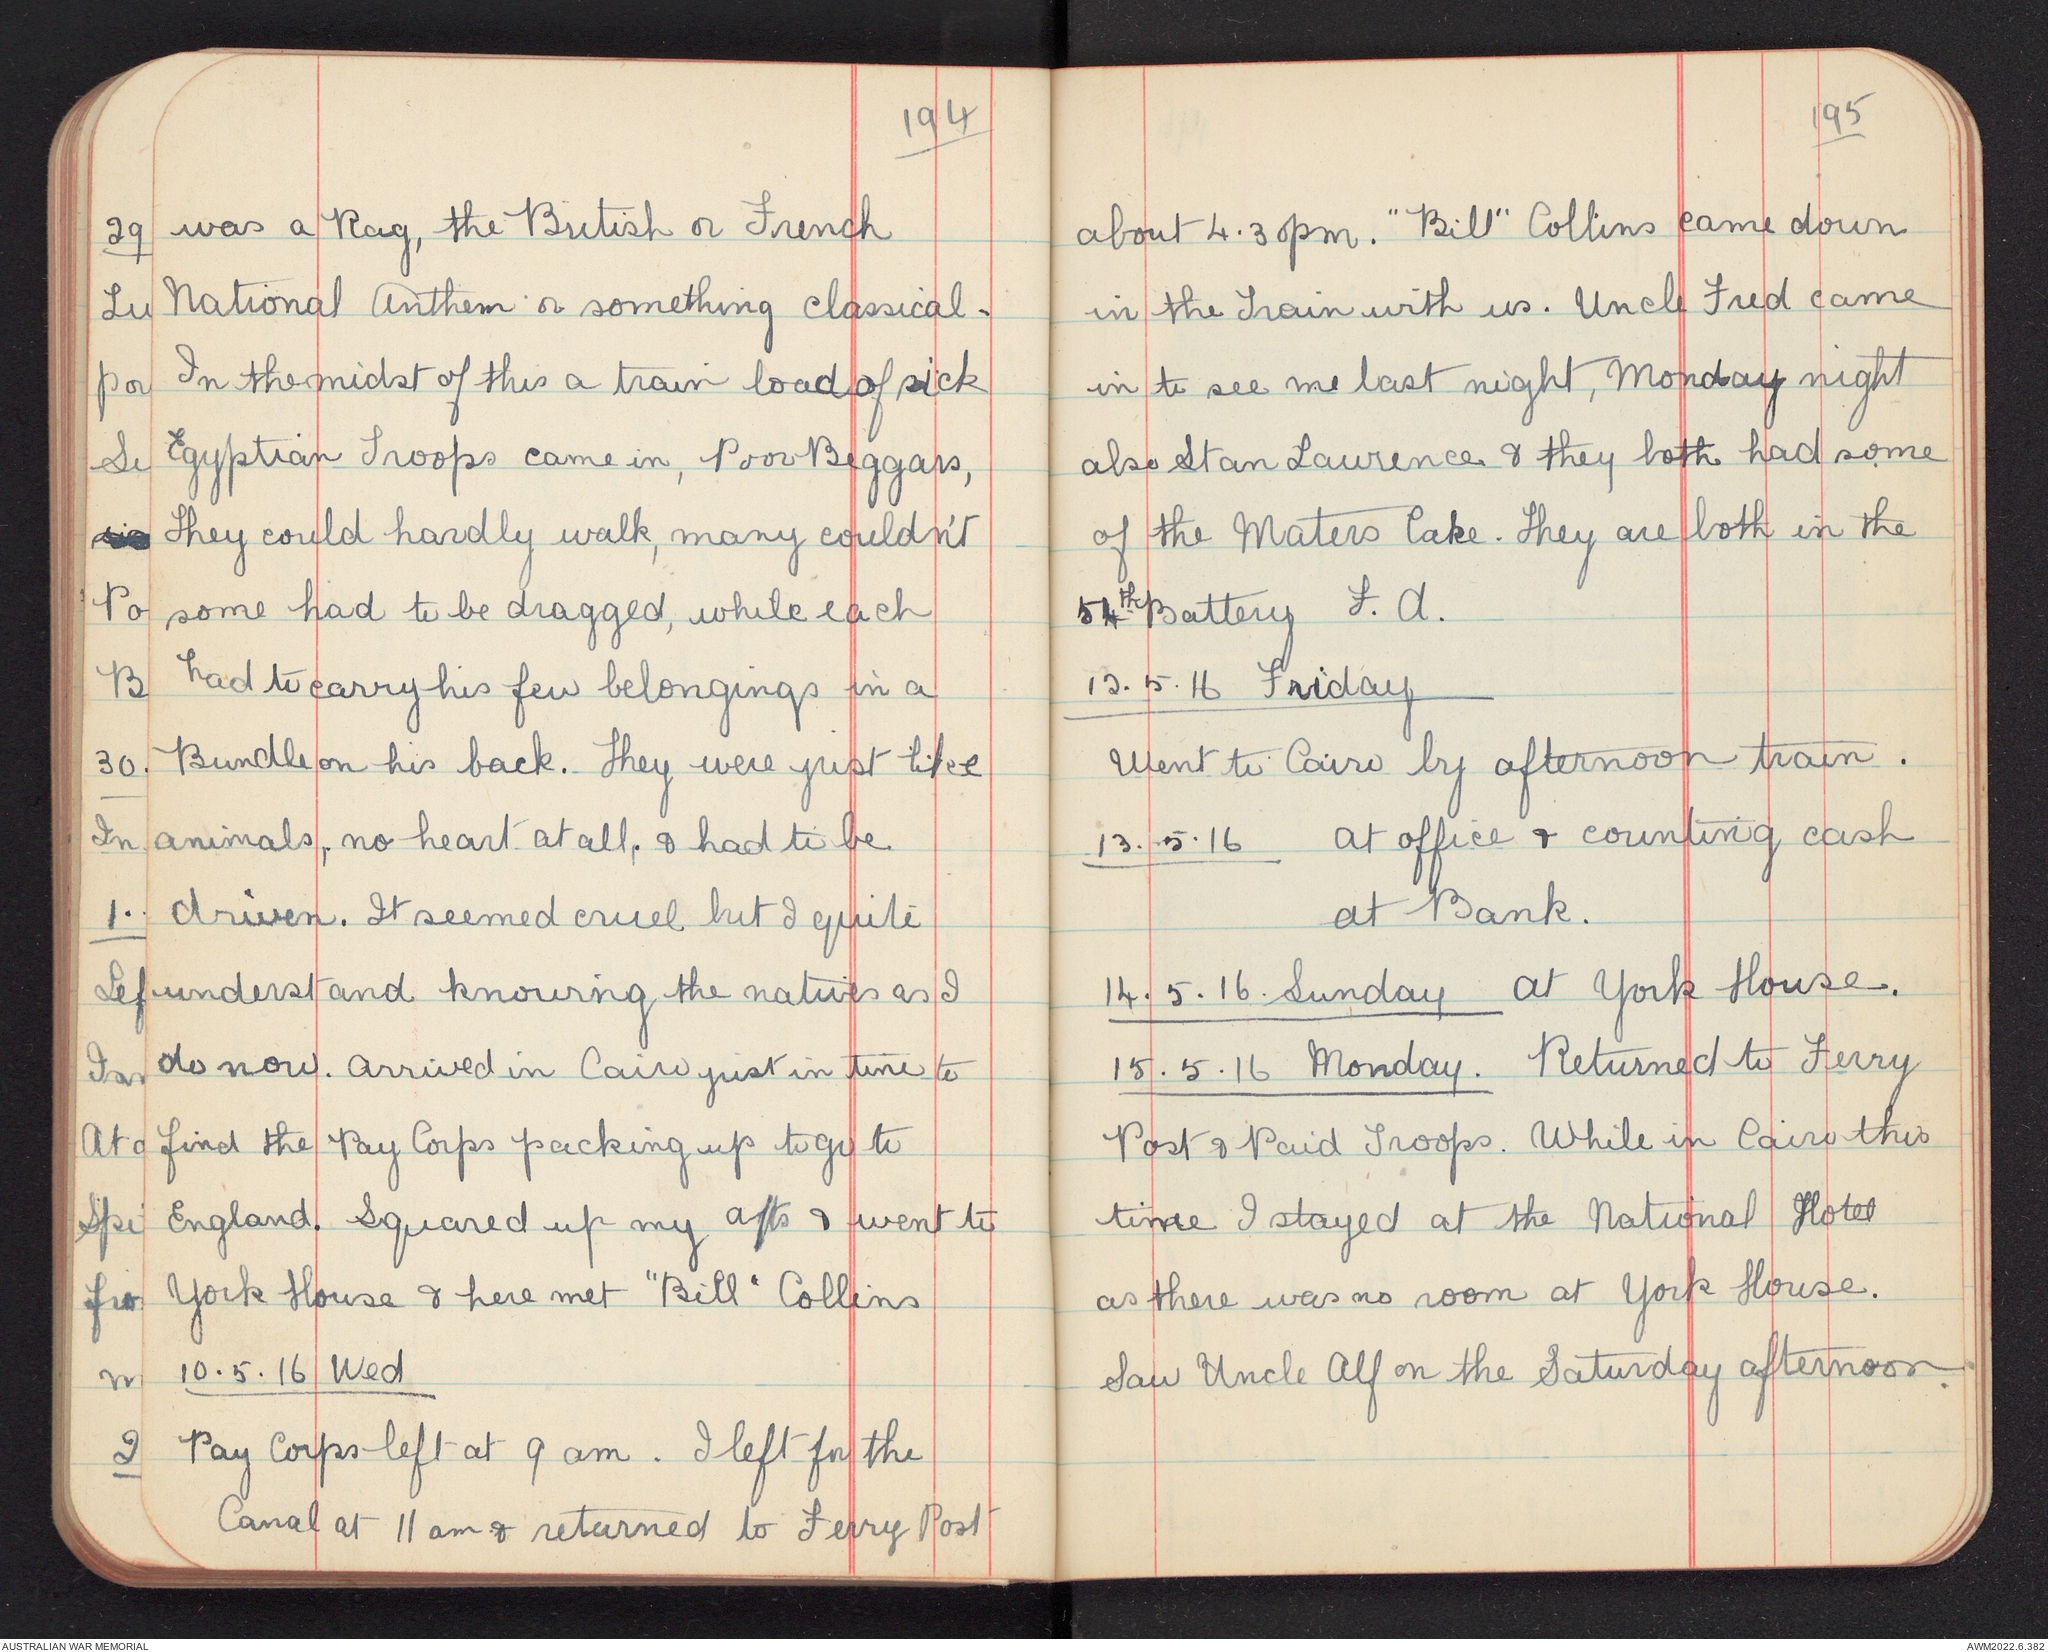 194
was a Rag, the British or French
National Anthem or something classical.
In the midst of this a train load of sick
Egyptian Troops came in, Poor Beggars,
They could hardly walk, many couldn't
some had to be dragged, while each
had to carry his few belongings in a
Bundle on his back. They were just like
animals, no heart at all, & had to be
driven. It seemed cruel but I quite
understand knowing the natives as I
do now. Arrived in Cairo just in time to
find the Pay Corps packing up to go to
England. Squared up my a/cs & went to
York House & here met "Bill" Collins
10.5.16 Wed
Pay Corps left at 9 am. I left for the
Canal at 11 am & returned to Ferry Post
29
Lu
por
Se
Po
B
30.
In
1.
Lef
At
Spe
fro
2
195
about 4.30pm. "Bill" Collins came down
in the Train with us. Uncle Fred came
in to see me last night, Monday night
also Stan Laurence & they both had some
of the Maters Cake. They are both in the
54th Battery F. A.
12.5.16 Friday
Went to Cairo by afternoon train.
13.5.16 At office & counting cash
at Bank.
14.5.16. Sunday At York House.
15.5.16 Monday. Returned to Ferry
Post & Paid Troops. While in Cairo this
time I stayed at the National Hotel
as there was no room at York House.
Saw Uncle Alf on the Saturday afternoon.
AUSTRALIAN WAR MEMORIAL
AWM2022.6.382